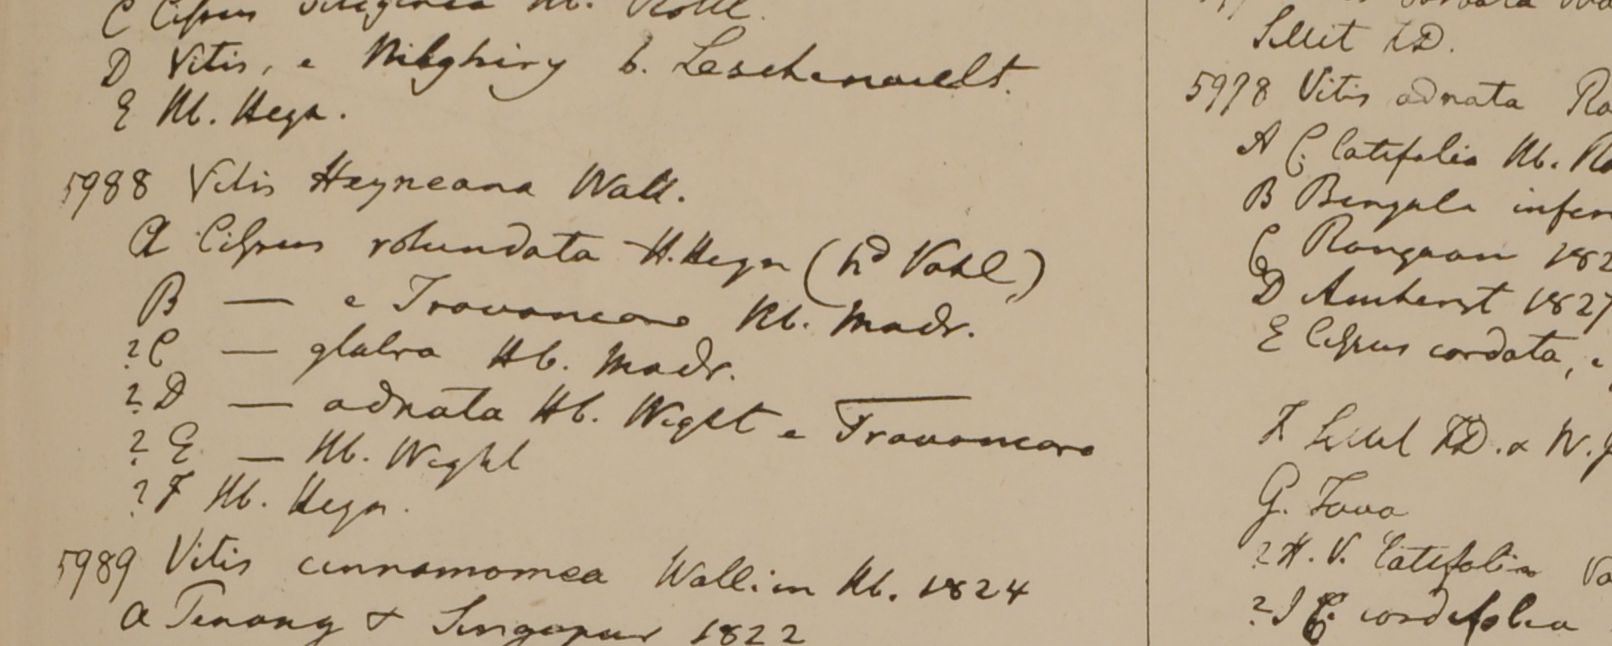 C Cissus Hb. Rottl.
D Vitis, e Nilghiry b. Leschenault.
E Hb. Heyn.
5988 Vitis Heyneana Wall.
A Cissus rotundata H.Heyn (hd Vahl,)
B — e Travancore Hb. Madr.
?C — glabra Hb. Madr.
?D — adnata Hb. Wight e Travancore
?E — Hb. Wight
?F Hb. Heyn.
5989 Vitis cinnamomea Wall. in Hb. 1824
a Penang & Singapur 1822
Sillet FD.
5978 Vitis adnata Ro
A C. latifolia Hb. Ro
B Bengala infer
C Rangoon 182
D Amherst 1827
E Cissus cordata,
F Sillet FD. & W.
G. Tavo
?H. V. latifolia Va
?I C. cordifolia